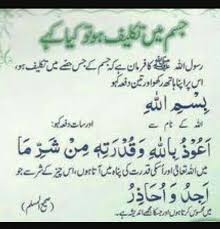 جسم میں تکلیف ہو تو کیا کہے
رسول اللہ ﷺ کا فرمان ہے کہ جسم کے جس حصے میں تکلیف ہو،
اس پر اپنا ہاتھ رکھو اور تین دفعہ کہو:
بِسْمِ اللهِ
اللہ کے نام سے اور سات دفعہ کہو:
اَعُوْذُ بِاللهِ وَقُدْرَتِهٖ مِنْ شَرِّ مَا
میں اللہ تعالیٰ اور اُسکی قدرت کی پناہ میں آتا ہوں، اس چیز کے شر سے جو
اَجِدُ وَ اُحَاذِرُ
میں محسوس کرتا ہوں اور جسکا مجھے اندیشہ ہے۔
(صحیح المسلم)